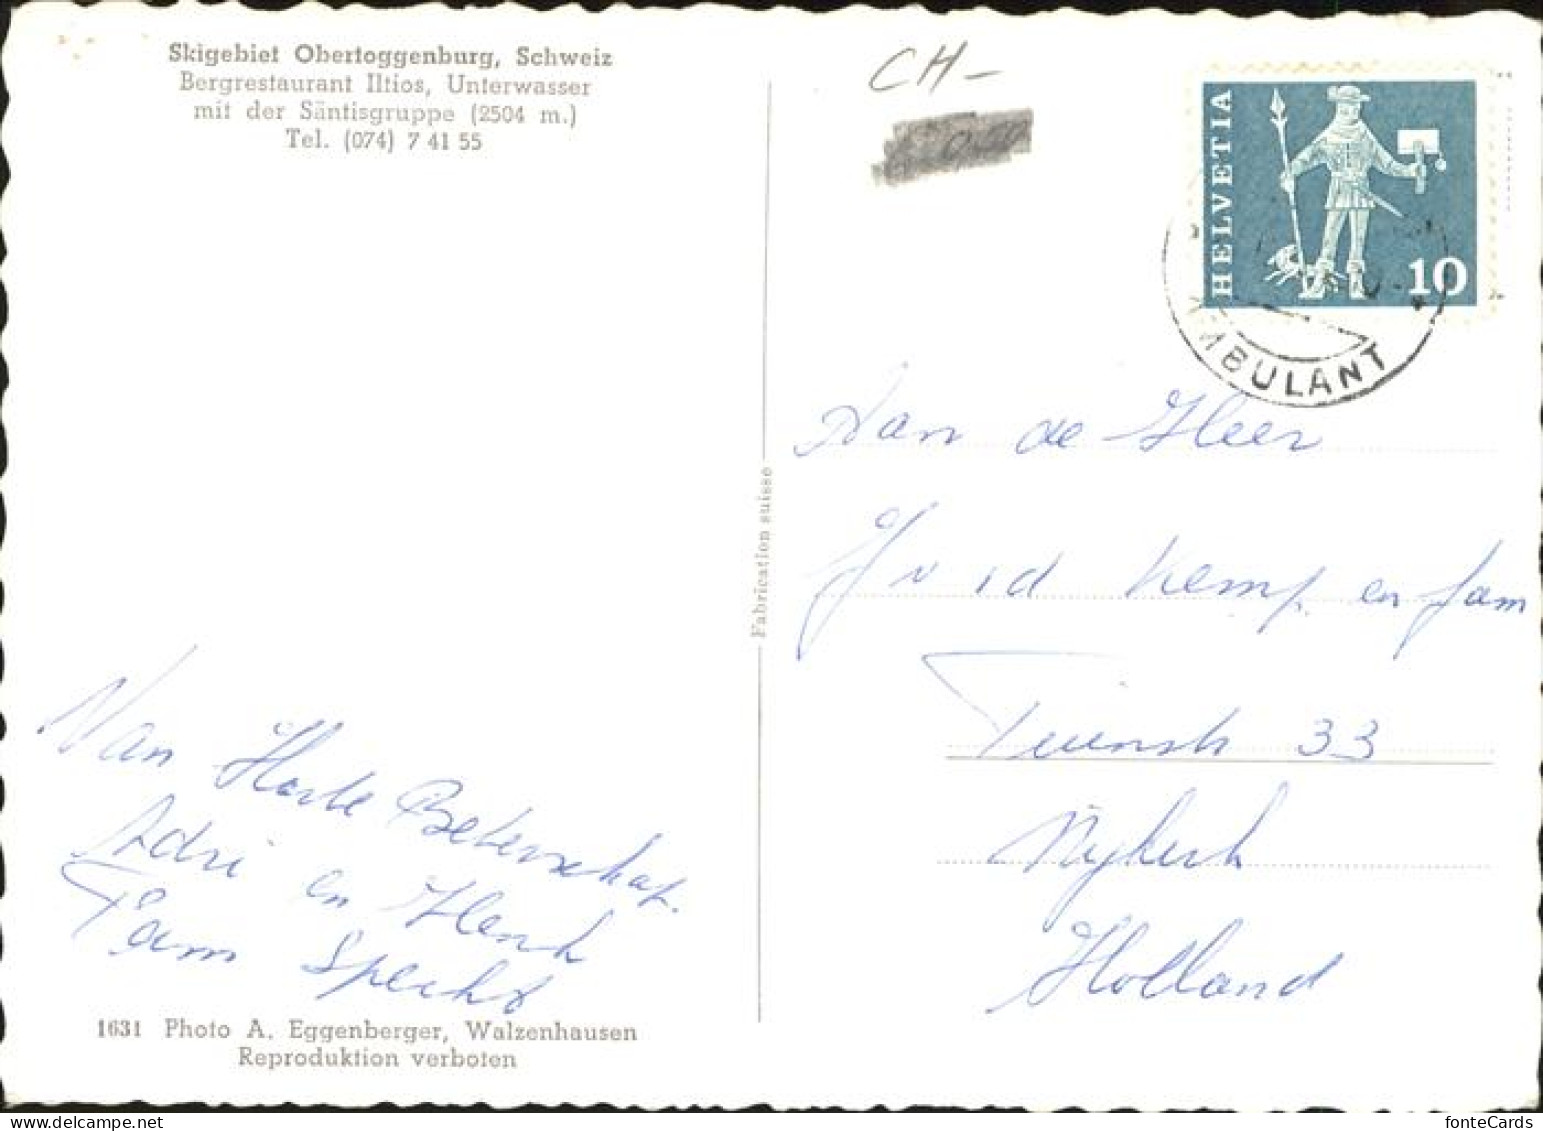 Skigebiet Obertoggenburg, Schweiz
Bergrestaurant Iltios, Unterwasser
mit der Säntisgruppe (2504 m.)
Tel. (074) 7 41 55
CH-
HELVETIA
10
AMBULANT
Aan de Heer
Kemp en fam
33
Nijkerk
Holland
Fabrication suisse
Van Harte Beterschap.
Adri en Henk
Fam Specht
1631 Photo A. Eggenberger, Walzenhausen
Reproduktion verboten
fonteCards